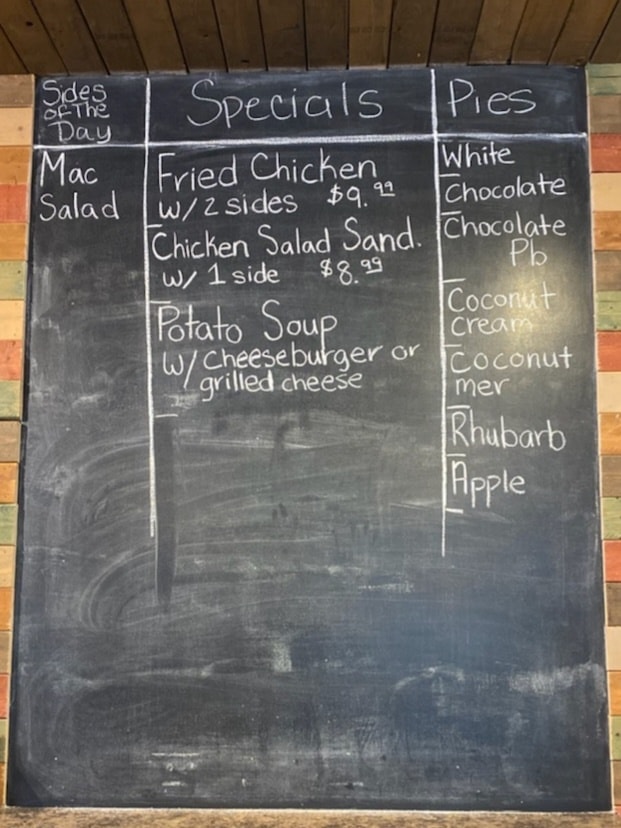 Sides
Of The
Day
Mac
Salad
Specials
Fried Chicken
w/ 2 sides $9.99
Chicken Salad Sand.
w/ 1 side $8.99
Potato Soup
w/ cheeseburger or
grilled cheese
Pies
White
Chocolate
Chocolate
Pb
Coconut
cream
Coconut
mer
Rhubarb
Apple